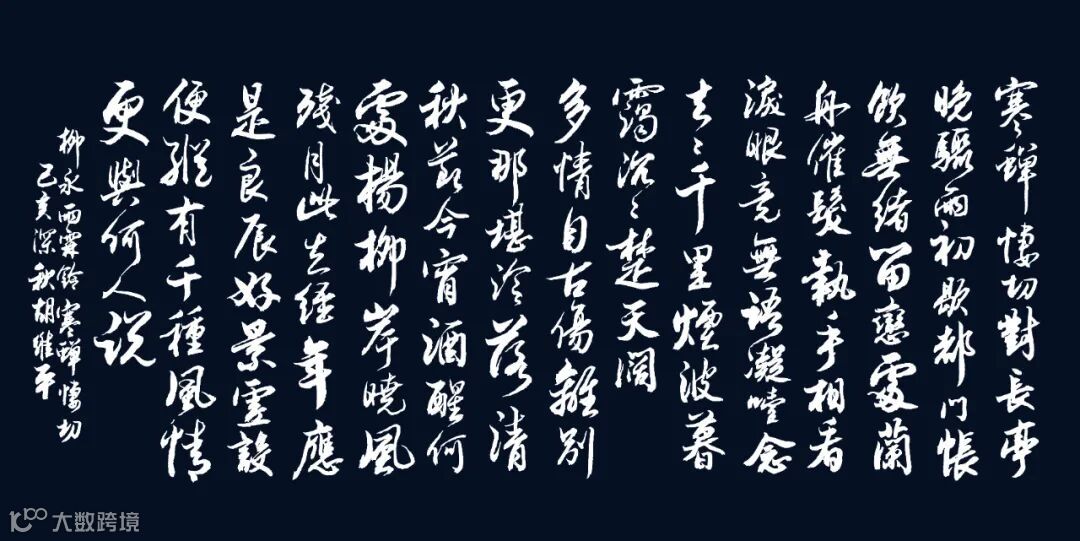 寒蟬悽切對長亭
晚驟雨初歇都門帳
飲無緒留戀處蘭
舟催發執手相看
淚眼竟無語凝噎念
去〻千里煙波暮
靄沉〻楚天闊
多情自古傷離別
更那堪冷落清
秋節今宵酒醒何
處楊柳岸曉風
殘月此去經年應
是良辰好景虛設
便縱有千種風情
更與何人說
柳永雨霖鈴寒蟬悽切
己亥深秋胡維平
大数跨境